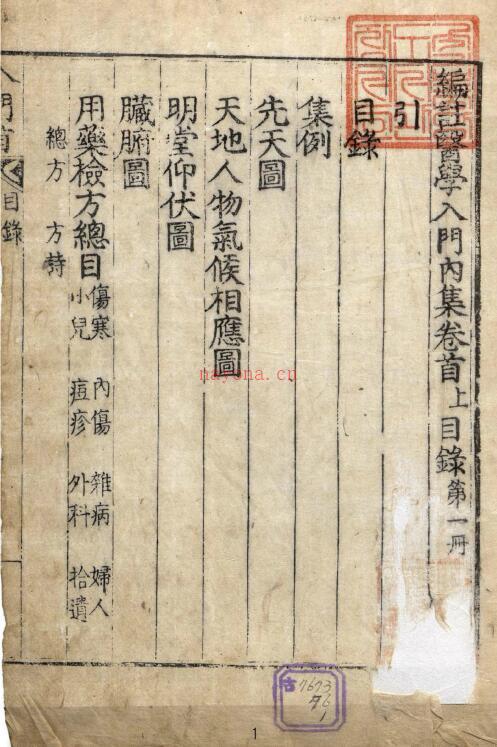 編註醫學入門內集卷首上目錄第一冊
引
目錄
集例
先天圖
天地人物氣候相應圖
明堂仰伏圖
臟腑圖
用藥檢方總目
傷寒 內傷 雜病 婦人
小兒 痘疹 外科 拾遺
總方
入門首 目錄
nayona.cn
古7673
76
1
1